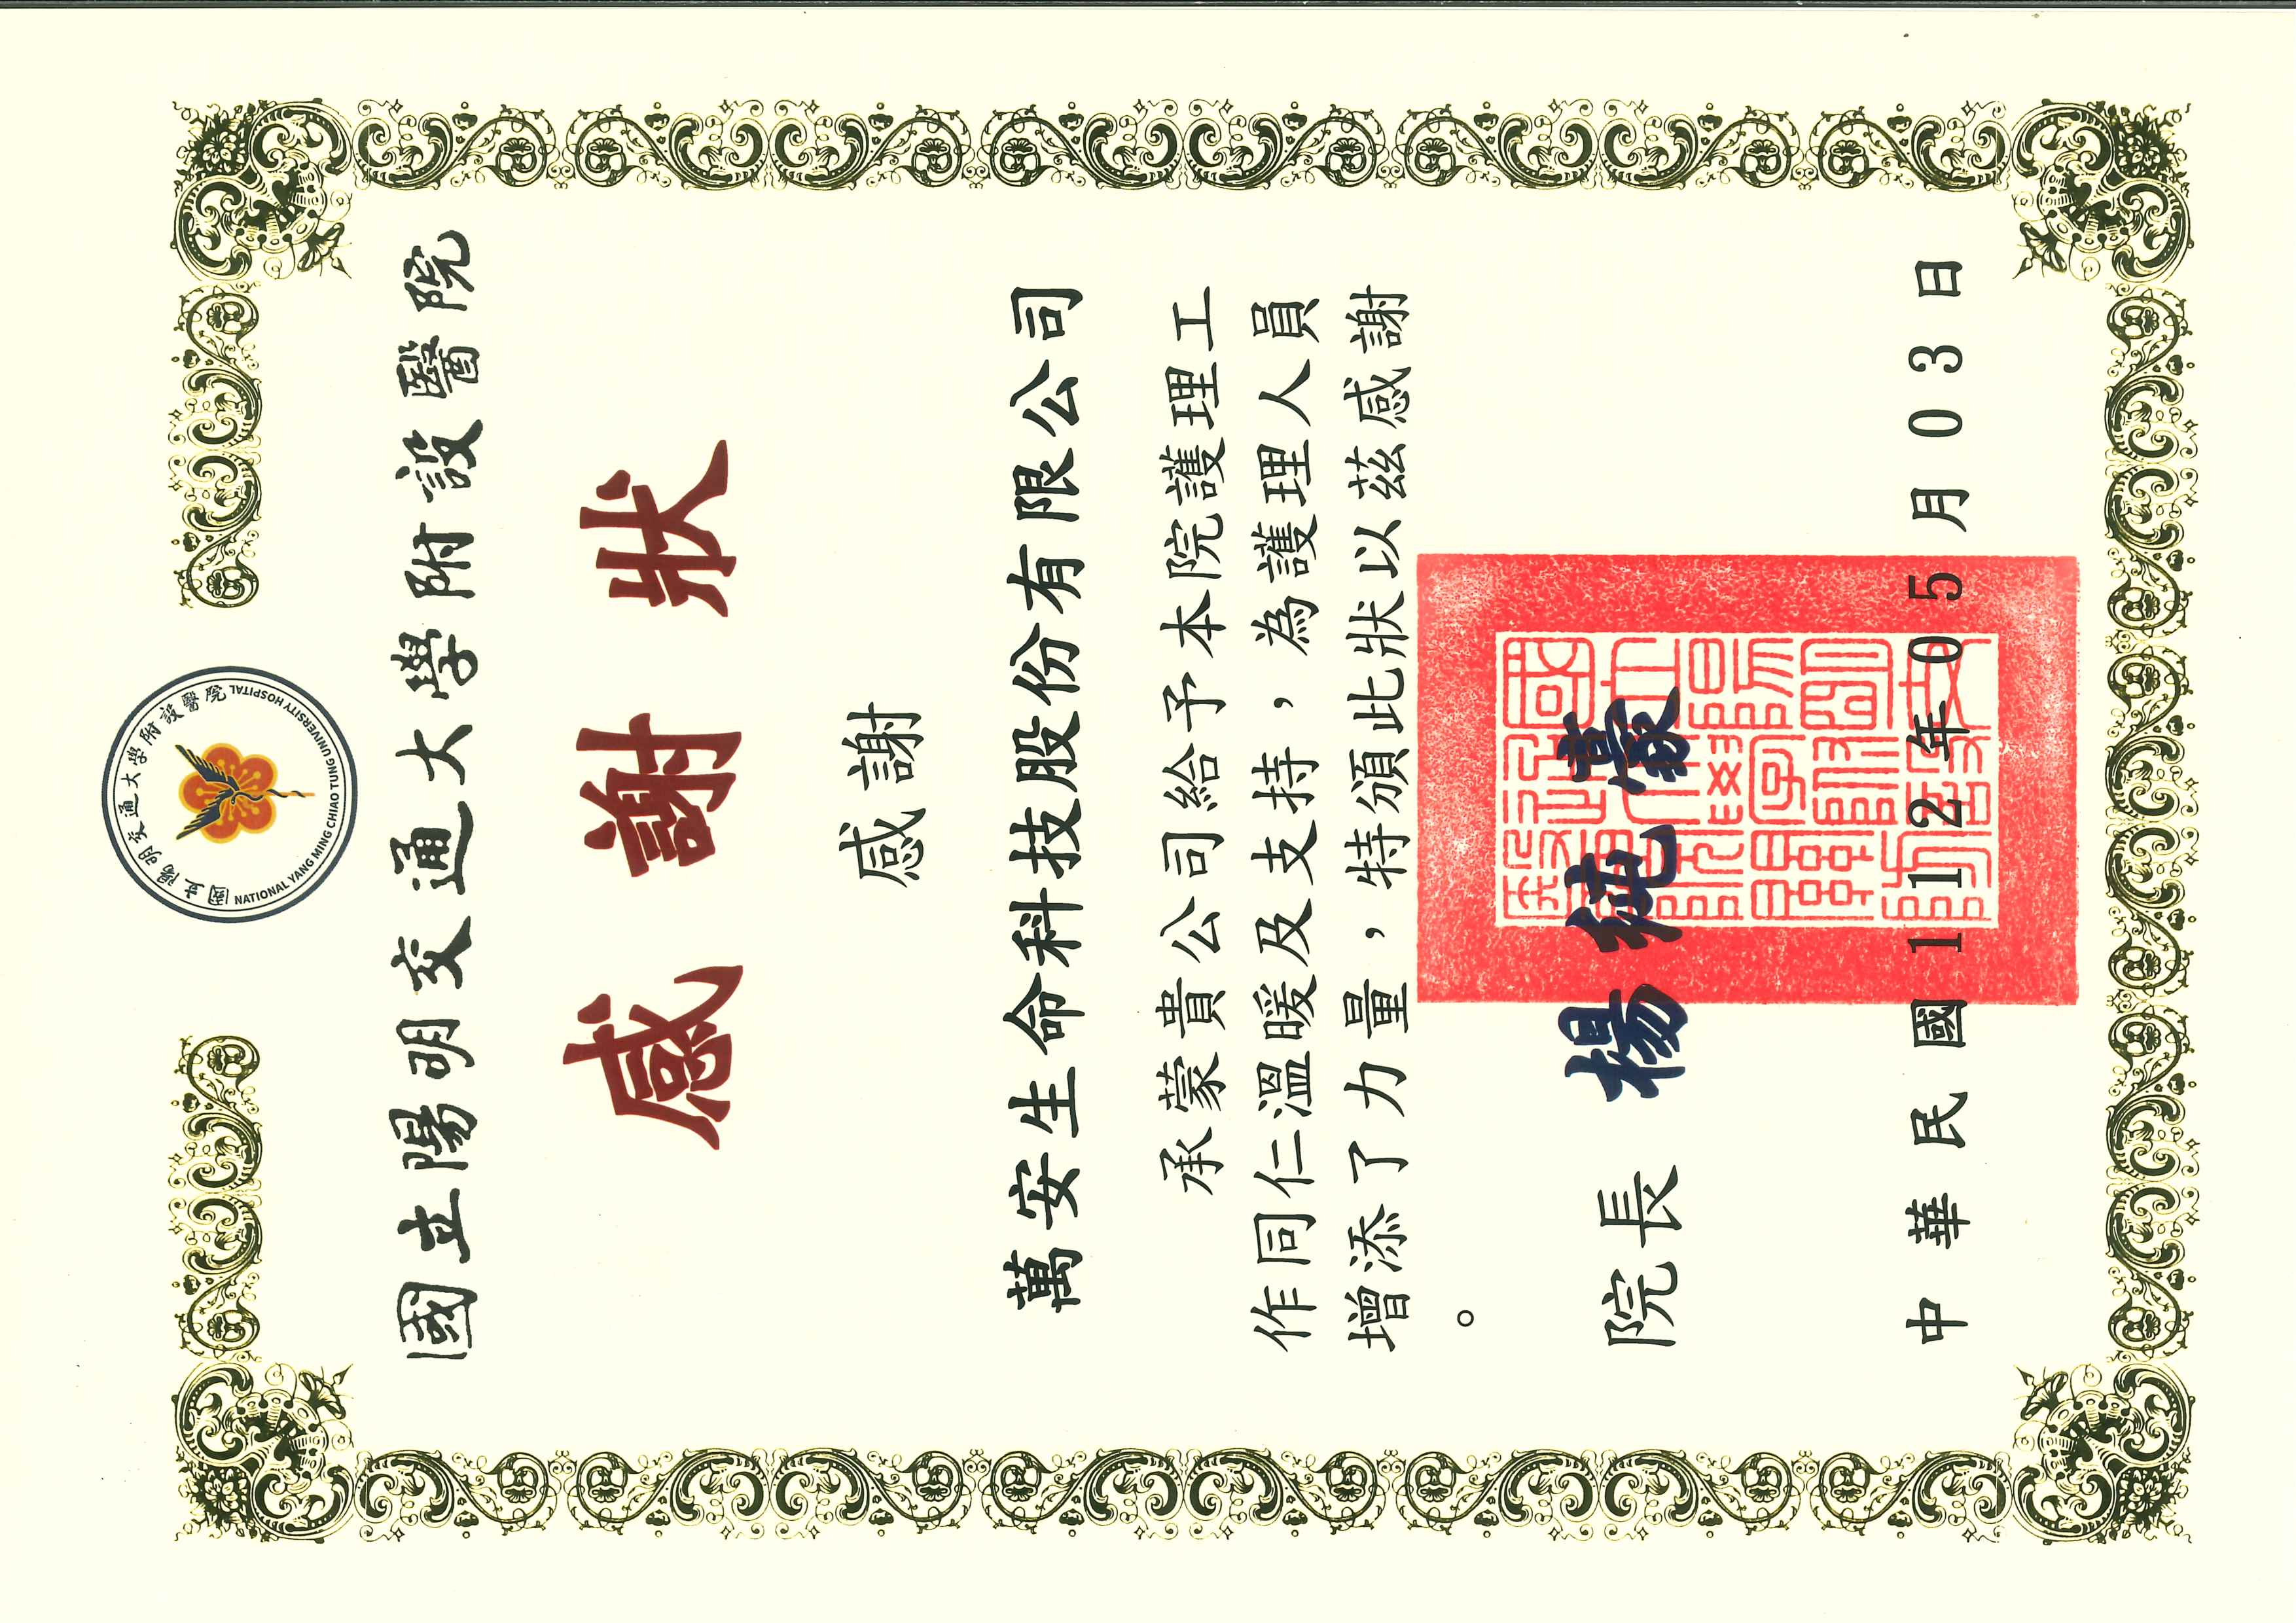 國立陽明交通大學附設醫院
NATIONAL YANG MING CHIAO TUNG UNIVERSITY HOSPITAL
國立陽明交通大學附設醫院
感謝狀
感謝
萬安生命科技股份有限公司
承蒙貴公司給予本院護理工
作同仁溫暖及支持，為護理人員
增添了力量，特頒此狀以茲感謝
。
院長 楊純豪
中華民國112年05月03日